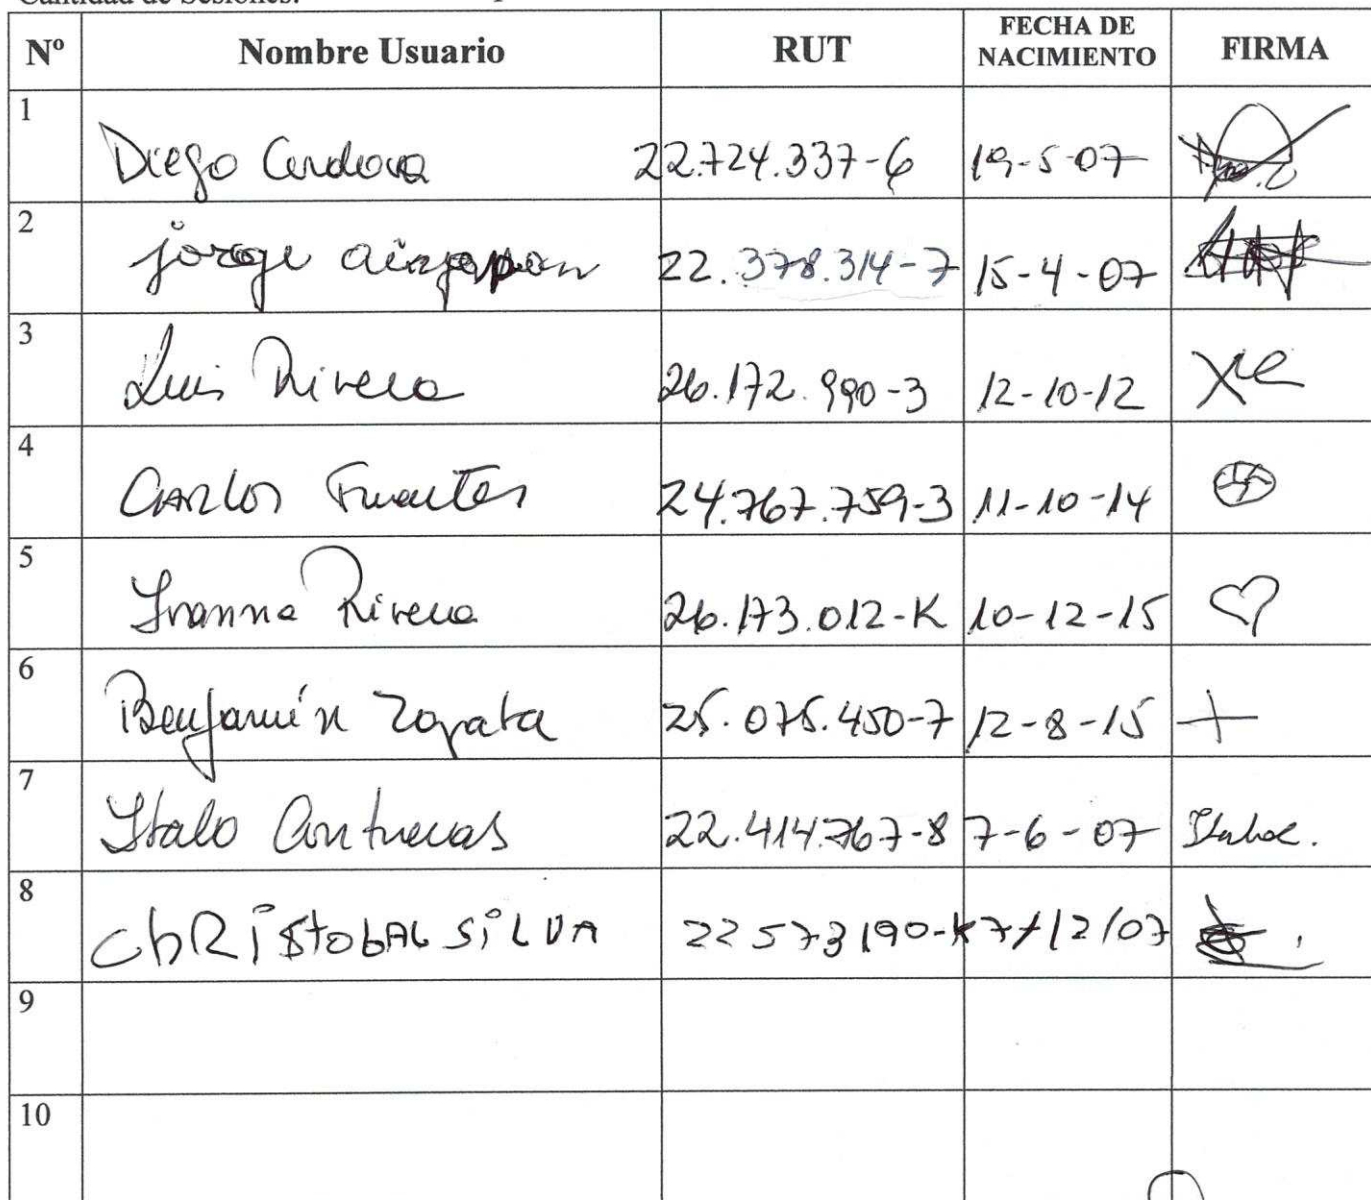 Cantidad de Sesiones:
Nº Nombre Usuario RUT FECHA DE NACIMIENTO FIRMA
1 Diego Cordova 22.724.337-6 19-5-07
2 jorge 22.378.314-7 15-4-07
3 Luis Rivera 26.172.990-3 12-10-12
4 CARLOS Fuentes 24.767.759-3 11-10-14
5 Ivanna Rivera 26.173.012-K 10-12-15
6 Benjamín Zapata 25.075.450-7 12-8-15
7 Italo Contreras 22.414.767-8 7-6-07
8 ChRiStobAL SiLVA 22573190-K 7/12/07
9
10